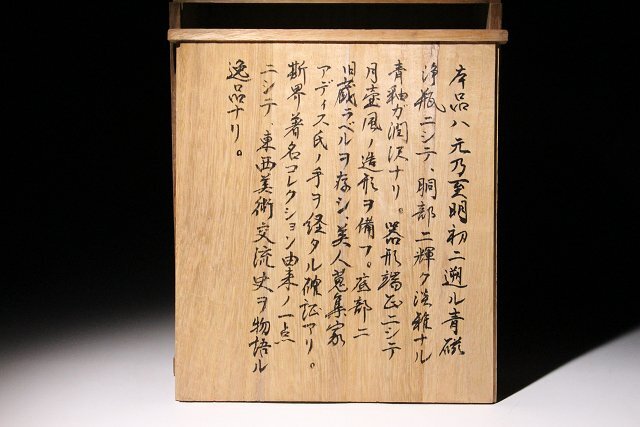 本品ハ元乃至明初ニ遡ル青磁
浄瓶ニシテ、胴部ニ輝ク淡雅ナル
青釉ガ潤沢ナリ。器形端正ニシテ
月壺風ノ造形ヲ備フ。底部ニ
旧蔵ラベルヲ存シ、美人蒐集家
アディス氏ノ手ヲ経タル確証アリ。
斯界著名コレクション由来ノ一点
ニシテ、東西美術交流史ヲ物語ル
逸品ナリ。